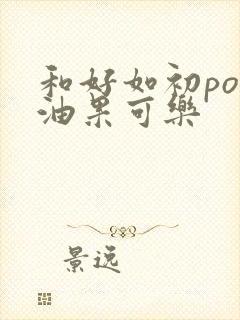 和好如初po
油果可樂
景远